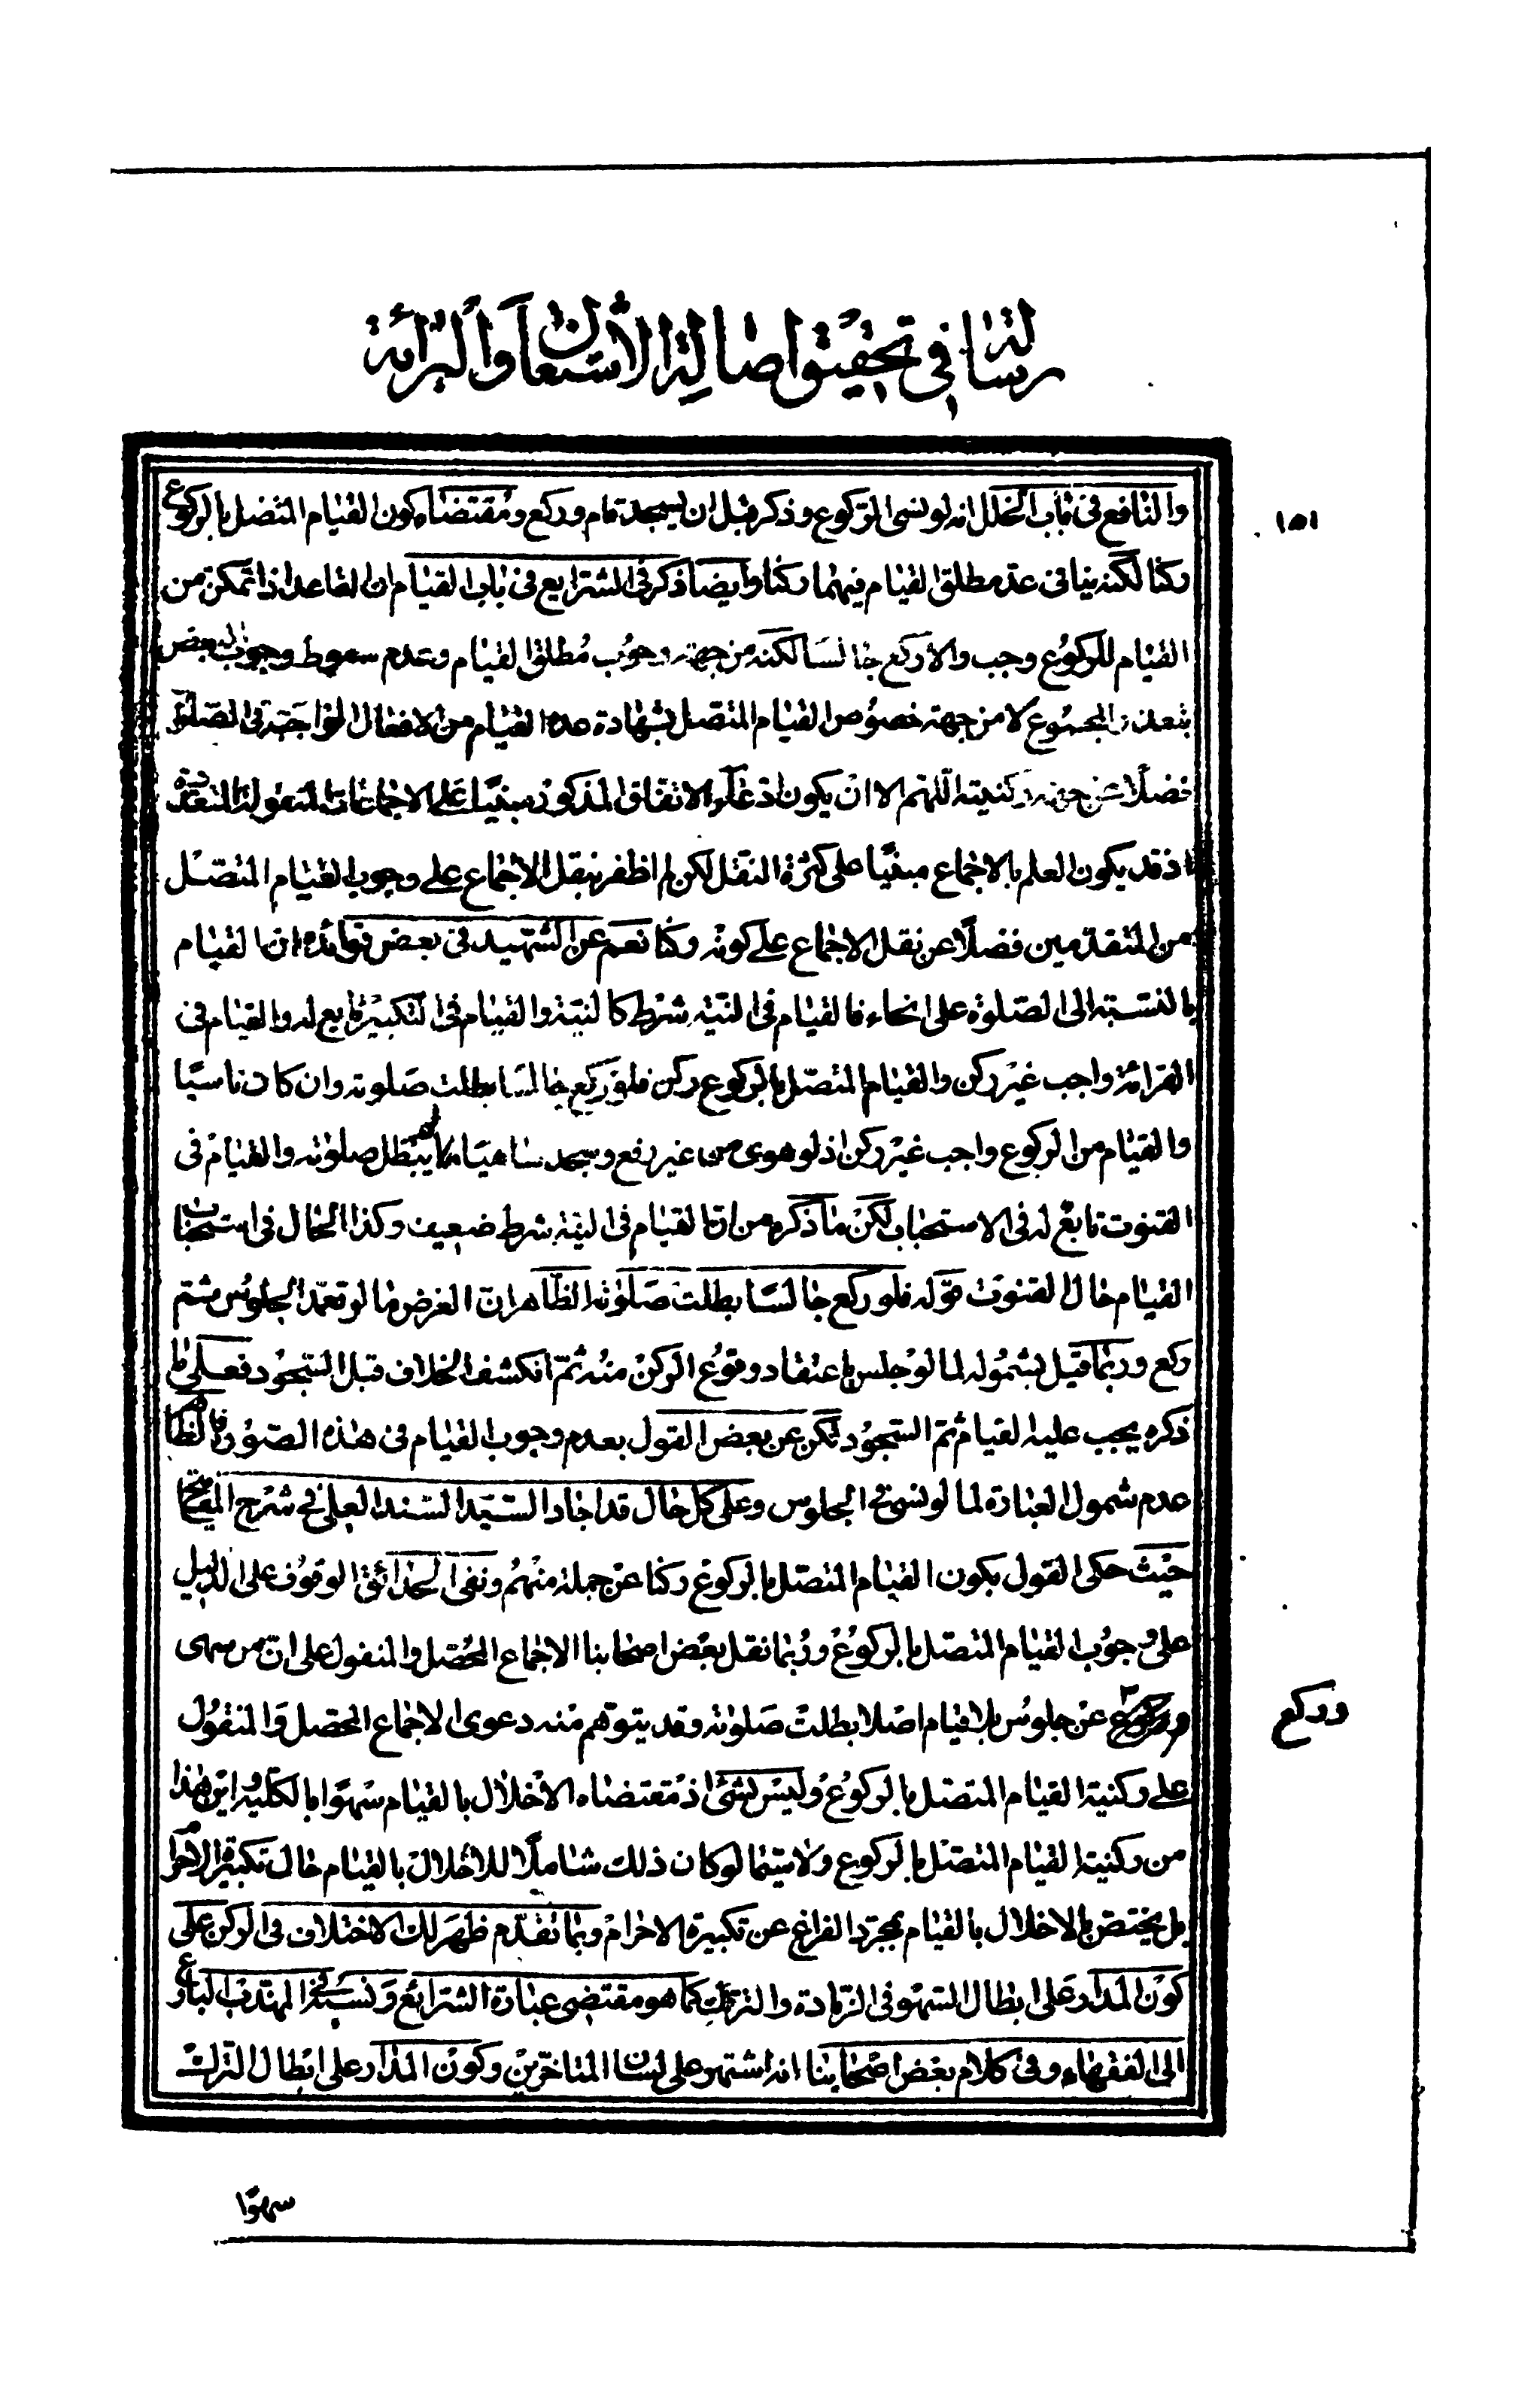 رسالة في تحقيق اصالة الاشتغال والبرائة
١٥١
والنافع فى باب الخلل انه لو نسى الركوع وذكر قبل ان يسجد قام وركع ومقتضاه كون القيام المتصل بالركوع
ركنا لكنه ينافى عد مطلق القيام فيهما ركنا وايضا ذكر فى الشرايع فى باب القيام ان القاعد اذا تمكن من
القيام للركوع وجب والا ركع جالسا لكنه من جهة وجوب مطلق القيام وعدم سقوط وجوب البعض
بتعذر المجموع لا من جهة خصوص القيام المتصل بشهادة عده القيام من الافعال الواجبة فى الصلوة
فضلا عن جهة ركنيته اللهم الا ان يكون ادعاء الاتفاق المذكور مبنيا على الاجماعات المنقولة المتقدمة
اذ قد يكون العلم بالاجماع مبنيا على كثرة النقل لكن لم اظفر بنقل الاجماع على وجوب القيام المتصل
من المتقدمين فضلا عن نقل الاجماع على كونه ركنا نعم عن الشهيد فى بعض فوائده ان القيام
بالنسبة الى الصلوة على انحاء فالقيام فى النية شرط كالنية والقيام فى التكبير تابع له والقيام فى
القرائة واجب غير ركن والقيام المتصل بالركوع ركن فلو ركع جالسا بطلت صلوته وان كان ناسيا
والقيام من الركوع واجب غير ركن اذ لو هوى من غير رفع وسجد ساهيا لم يبطل صلوته والقيام فى
القنوت تابع له فى الاستحباب لكن ما ذكره من ان القيام فى النية شرط ضعيف وكذا الحال فى استحباب
القيام حال القنوت قوله فلو ركع جالسا بطلت صلوته الظاهر ان الغرض ما لو تعمد الجلوس ثم
ركع وربما قيل بشموله لما لو جلس باعتقاد وقوع الركن منه ثم انكشف الخلاف قبل السجود فعلى ما
ذكره يجب عليه القيام ثم السجود لكن عن بعض القول بعدم وجوب القيام فى هذه الصورة فالظاهر
عدم شمول العبارة لما لو نسى فى الجلوس وعلى كل حال قد اجاد السيد السند العلى فى شرح المفاتيح
حيث حكى القول بكون القيام المتصل بالركوع ركنا عن جملة منهم ونفى الحدائق الوقوف على الدليل
على وجوب القيام المتصل بالركوع وربما نقل بعض اصحابنا الاجماع المحصل والمنقول على ان من سهى
وركع
عن جلوس بلا قيام اصلا بطلت صلوته وقد يتوهم منه دعوى الاجماع المحصل والمنقول
على ركنية القيام المتصل بالركوع وليس بشئ اذ مقتضاه الاخلال بالقيام سهوا بالكلية واين هذا
من ركنية القيام المتصل بالركوع ولا سيما لو كان ذلك شاملا للاخلال بالقيام حال تكبيرة الاحرام
بل يختص بالاخلال بالقيام بمجرد الفراغ عن تكبيرة الاحرام وبما تقدم ظهر لك الاختلاف فى الركن على
كون المدار على ابطال السهو فى الزيادة والترك كما هو مقتضى عبارة الشرائع ونسبته فى المهذب البارع
الى الفقهاء وفى كلام بعض اصحابنا انه اشتهر على لسان المتاخرين وكون المدار على ابطال الترك
سهوا